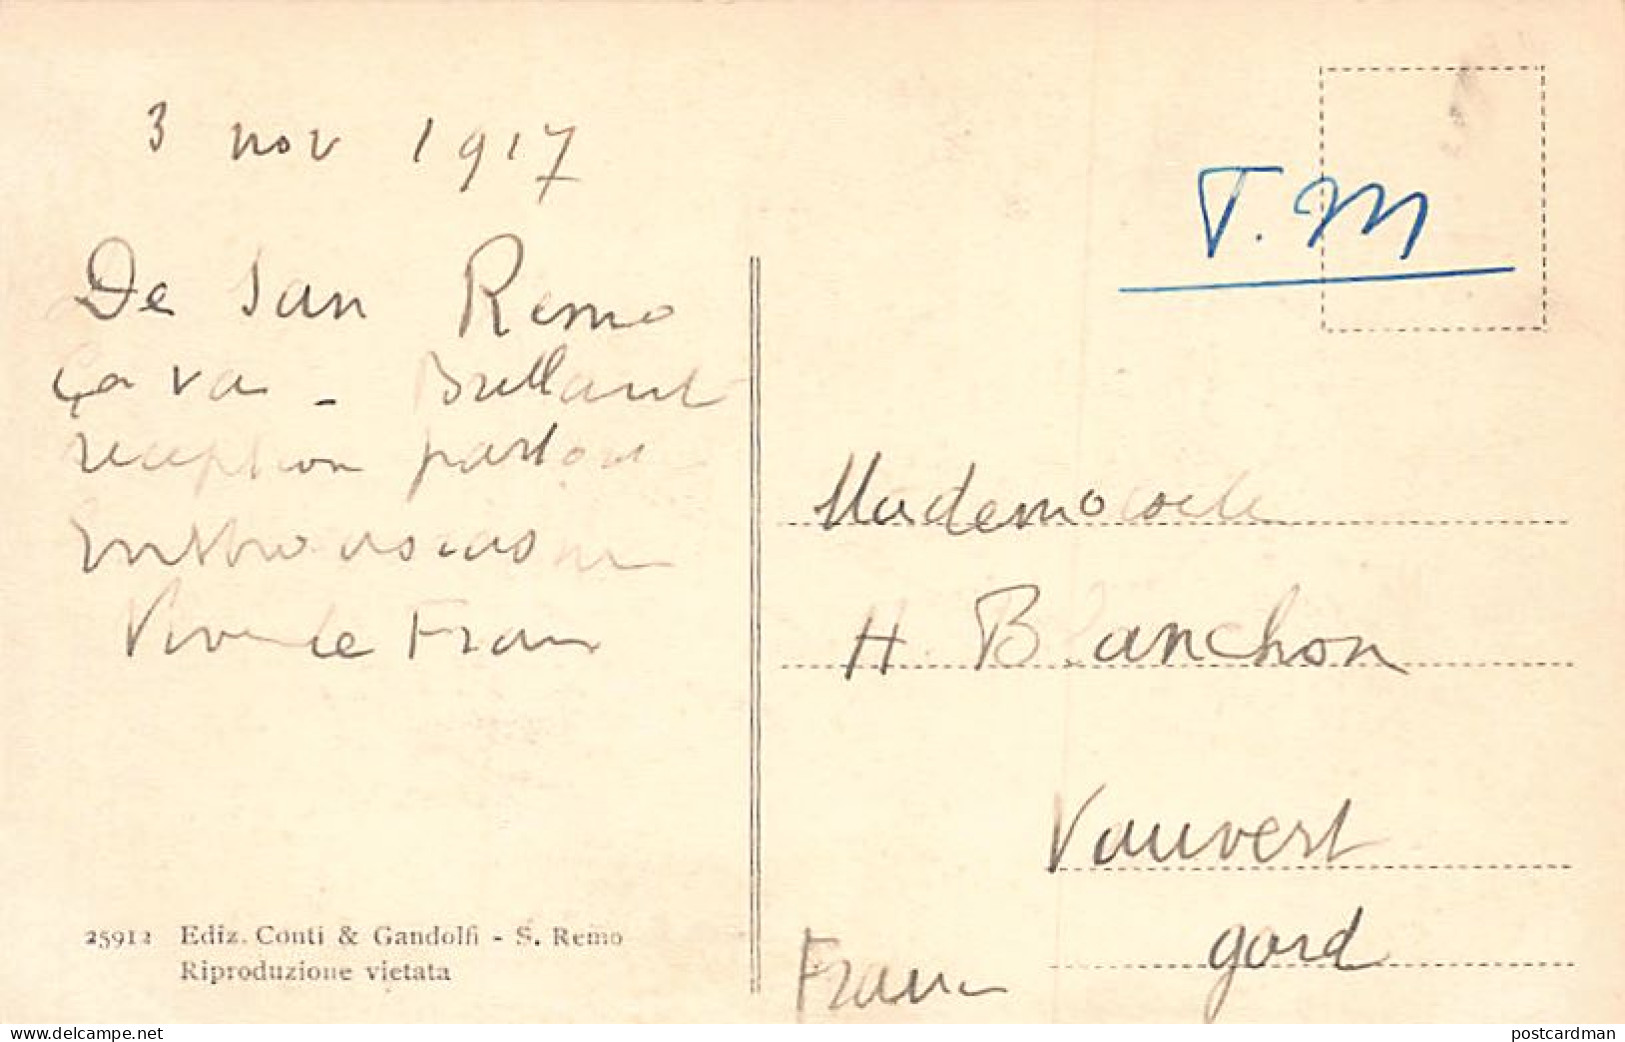 3 nov 1917
De San Remo
ça va - Brillant
reception partout
Enthousiasme
Vive le Franc
25912 Ediz. Conti & Gandolfi - S. Remo
Riproduzione vietata
T. M
Mademoiselle
H. Blanchon
Vauvert
gard
France
www.delcampe.net
postcardman